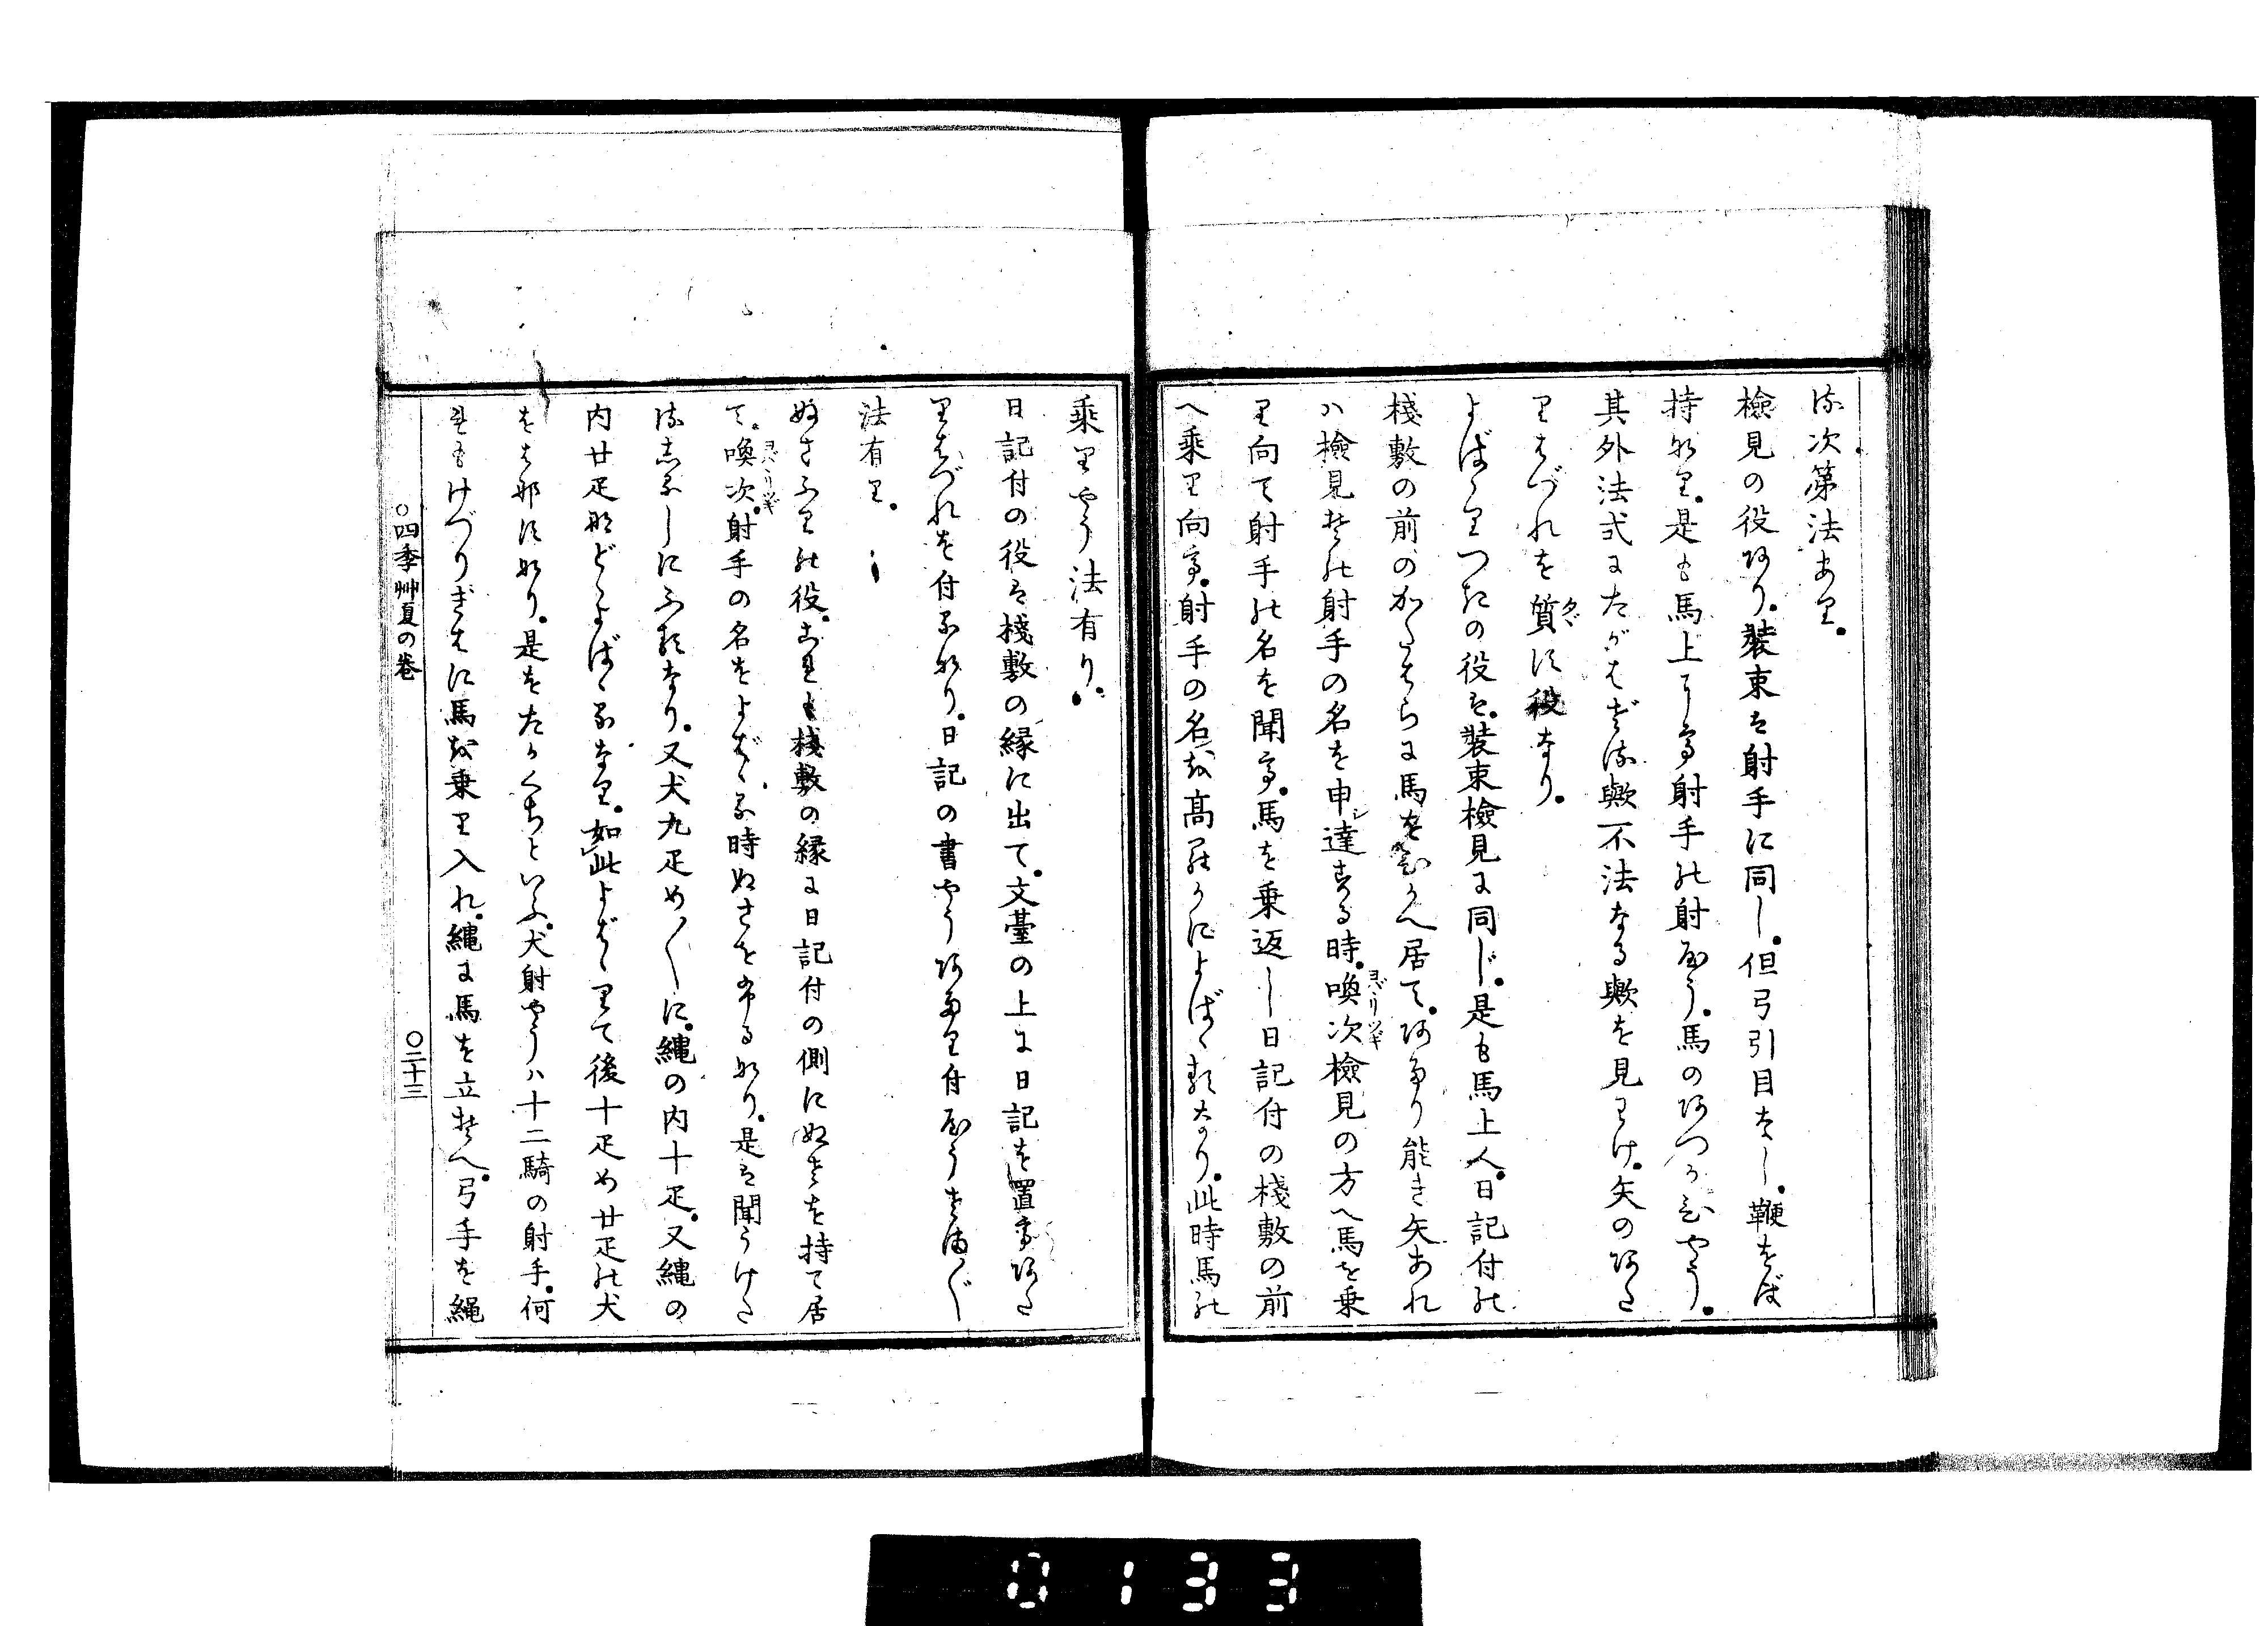 る次第法あり。
檢見の役あり。裝束は射手に同し。但弓引目なし。鞭をば
持なり。是も馬上にて射手の射やう。馬のあつかひやう。
其外法式にたがはざる歟不法なる歟を見わけ。矢のあた
りはづれを質す役なり。
よばゝりつきの役は。裝束檢見に同じ。是も馬上人。日記付の
棧敷の前のかたはらに馬をひかへ居て。あたり能き矢あれ
ハ檢見其射手の名を申達する時。喚次檢見の方へ馬を乗
り向て射手の名を聞て。馬を乗返し日記付の棧敷の前
へ乗り向て。射手の名を高らかによばゝるなり。此時馬の
乗りやう法有り。
日記付の役は棧敷の縁に出て。文臺の上に日記を置てあた
りはづれを付るなり。日記の書やうあたり付やうさま〴〵
法有り。
ぬさふりの役。これも棧敷の縁に日記付の側にぬさを持て居
て。喚次。射手の名をよばゝる時ぬさをふるなり。是は聞うけた
るしるしにふるなり。又犬九疋め〳〵に。縄の内十疋。又縄の
内廿疋などゝよばゝるなり。如此よばゝりて後十疋め廿疋の犬
をはなすなり。是をたかくちといふ。犬射やうハ十二騎の射手。何
れもけづりぎはに馬を乗り入れ。縄に馬を立そへ。弓手を縄
○四季艸夏の巻
○二十三
0133